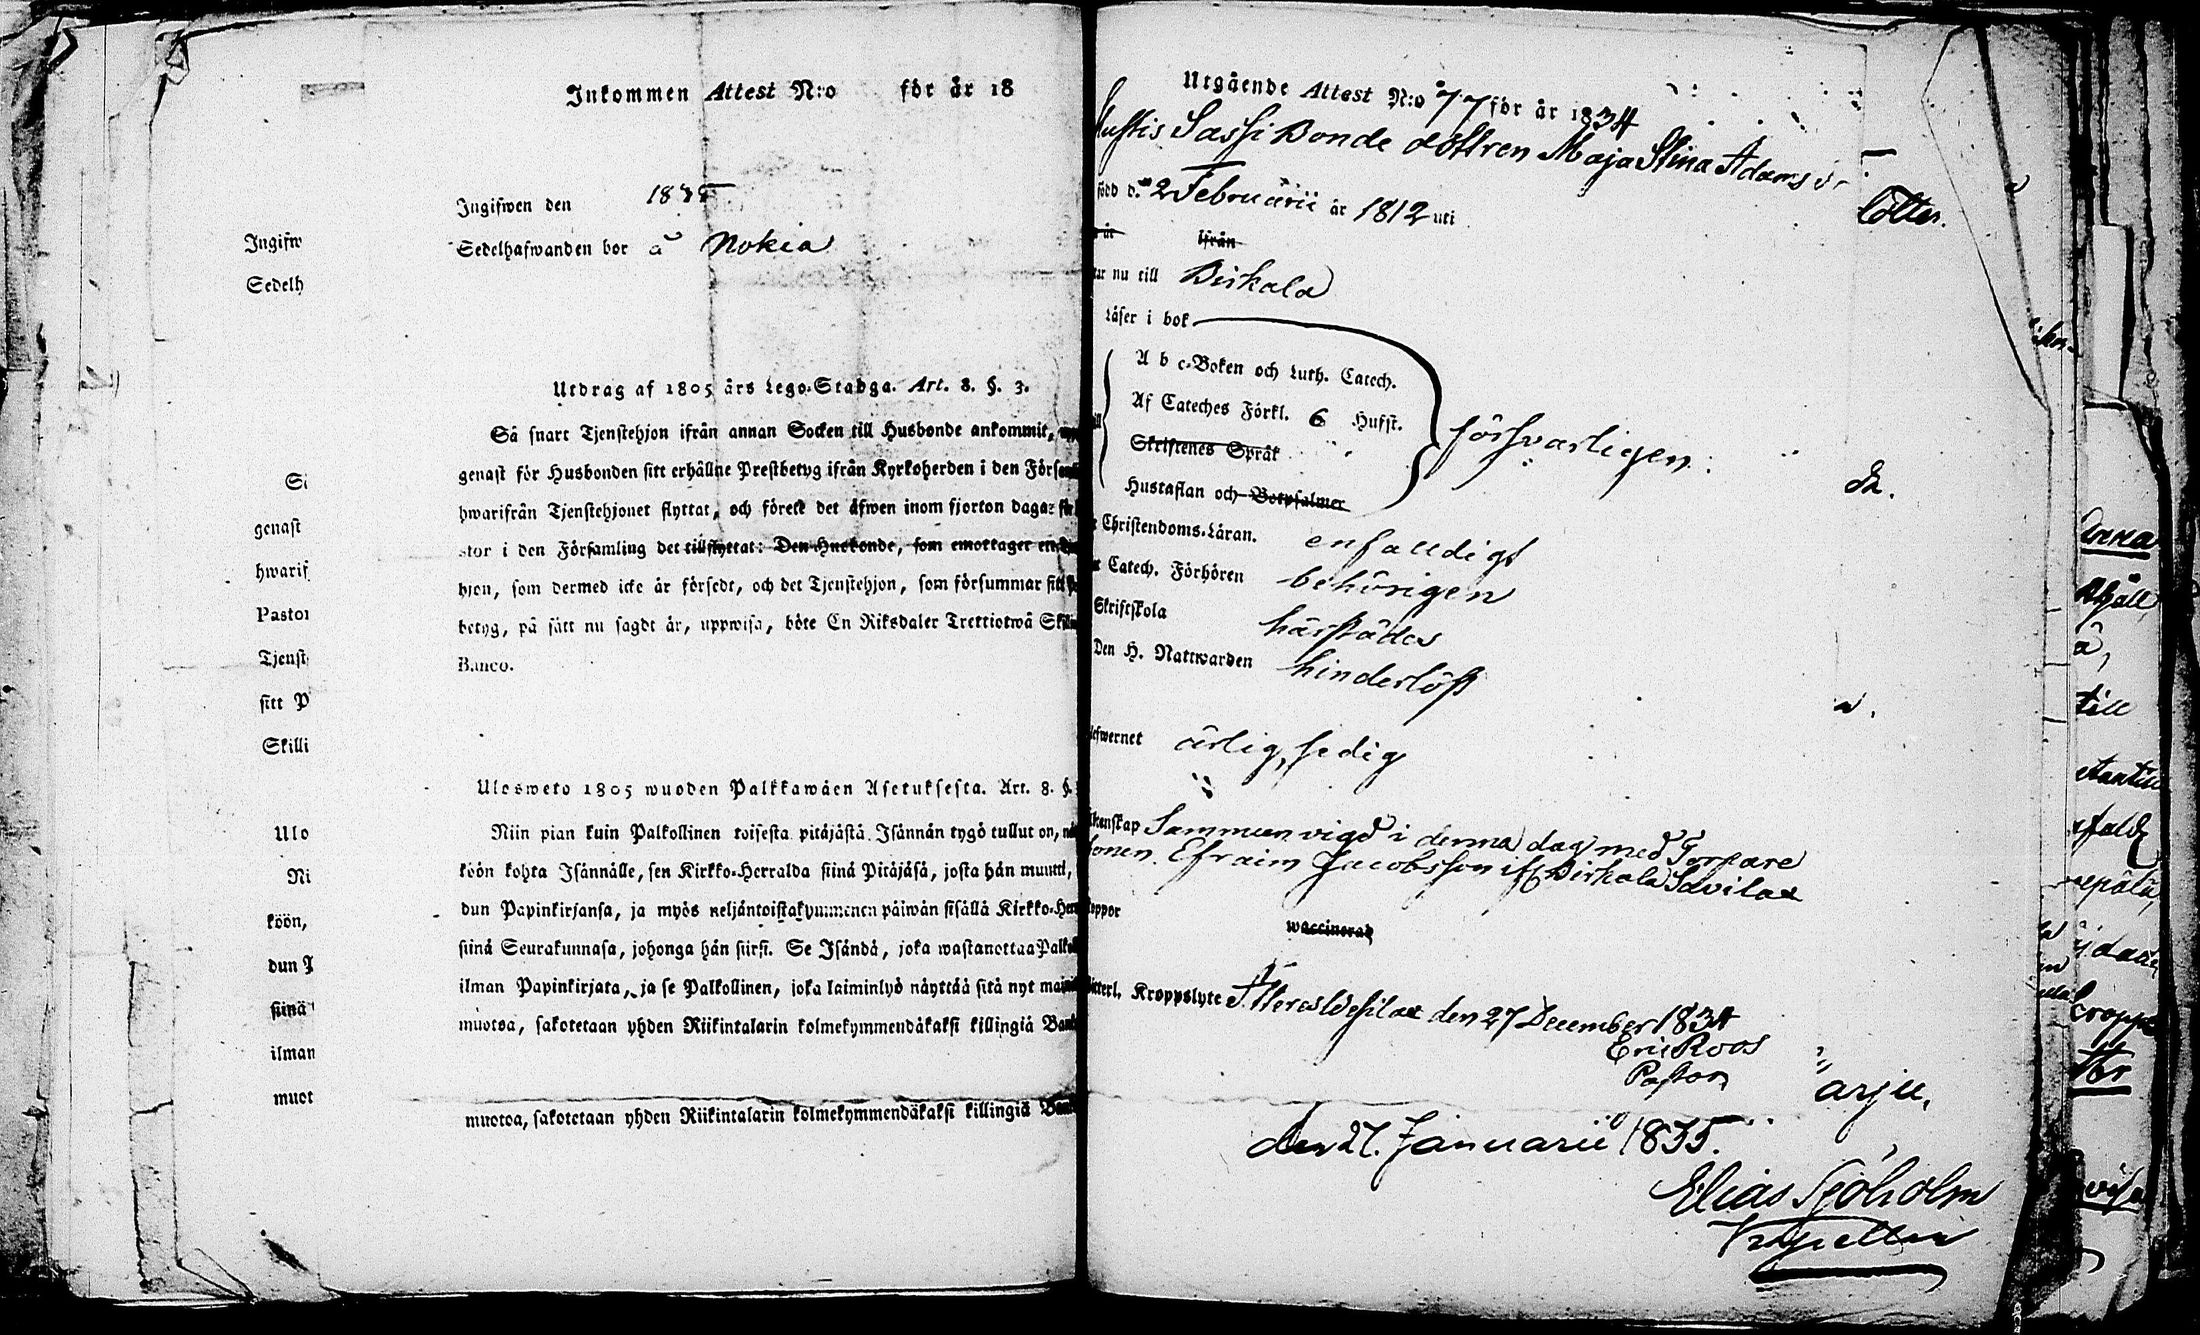 Inkommen Attest N:o för år 18
Ingifwen den 1835
Sedelhafwanden bor å Nokia
Ingifw
Sedelh
Utdrag af 1805 års Lego-Stadga. Art. 8. §. 3.
Så snart Tjenstehjon ifrån annan Socken till Husbonde ankommit,
genast för Husbonden sitt erhållne Prestbetyg ifrån Kyrkoherden i den Förs
hwarifrån Tjenstehjonet flyttat, och förete det äfwen inom fjorton dagar
stor i den Församling det tillflyttat: Den Husbonde, som emottager
hjon, som dermed icke är försedt, och det Tjenstehjon, som försummar sitt
betyg, på sätt nu sagdt är, uppwisa, böte En Riksdaler Trettiotwå Skillin
Banco.
Si
genast
hwarif
Pastor
Tjenst
sitt P
Skilli
Ulosweto 1805 wuoden Palkkawäen Asetuksesta. Art. 8. §.
Niin pian kuin Palkollinen toisesta pitäjästä Isännän tygö tullut on,
köön kohta Isännälle, sen Kirkko-Herralda siinä Pitäjäsä, josta hän muutti,
dun Papinkirjansa, ja myös neljäntoistakymmenen päiwän sisällä Kirkko-Her
siinä Seurakunnasa, johonga hän siirsi. Se Isändä, joka wastanottaa Palko
ilman Papinkirjata, ja se Palkollinen, joka laiminlyö näyttää sitä nyt mai
muotoa, sakotetaan yhden Riikintalarin kolmekymmendäkaksi killingiä Ban
muotoa, sakotetaan yhden Riikintalarin kolmekymmendäkaksi killingiä Ban
Ulo
Ni
köön,
dun P
siinä
ilman
muot
Utgående Attest N:o 77 för år 1834
Sassi Bonde dottren Maja Stina Adamsdr
född d. 2 Februarii år 1812 uti
år ifrån
nu till Birkala
Läser i bok
A b c-Boken och Luth. Catech.
Af Cateches Förkl. 6 Hufst.
Skriftenes Språk
Hustaflan och Botpsalmer
försvarligen
Christendoms-Läran. enfaldigt
Catech. Förhören behörigen
Skriftskola härstädes
Den H. Nattwarden hinderlöst
efwernet ärlig, sedig
skap Sammanvigd i denna dag med Torpare
sonen Efraim Jacobsson ifr Birkala Savilax
oppor
waccinerad
itterl. Kroppslyte Attereswesilax den 27 December 1834
Eric Roos
Pastor
arju,
den 27. Januarii 1835.
Elias Sjöholm
Kapellan
till